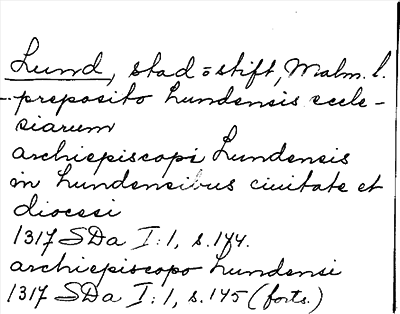 Lund, stad o stift, Malm. l.
-- preposito Lundensis eccle-
siarum
archiepiscopi Lundensis
in Lundensibus ciuitate et
diocesi
1317 SDa I:1, s.144.
archiepiscopo Lundensi
1317 SDa I:1, s.145 (forts.)